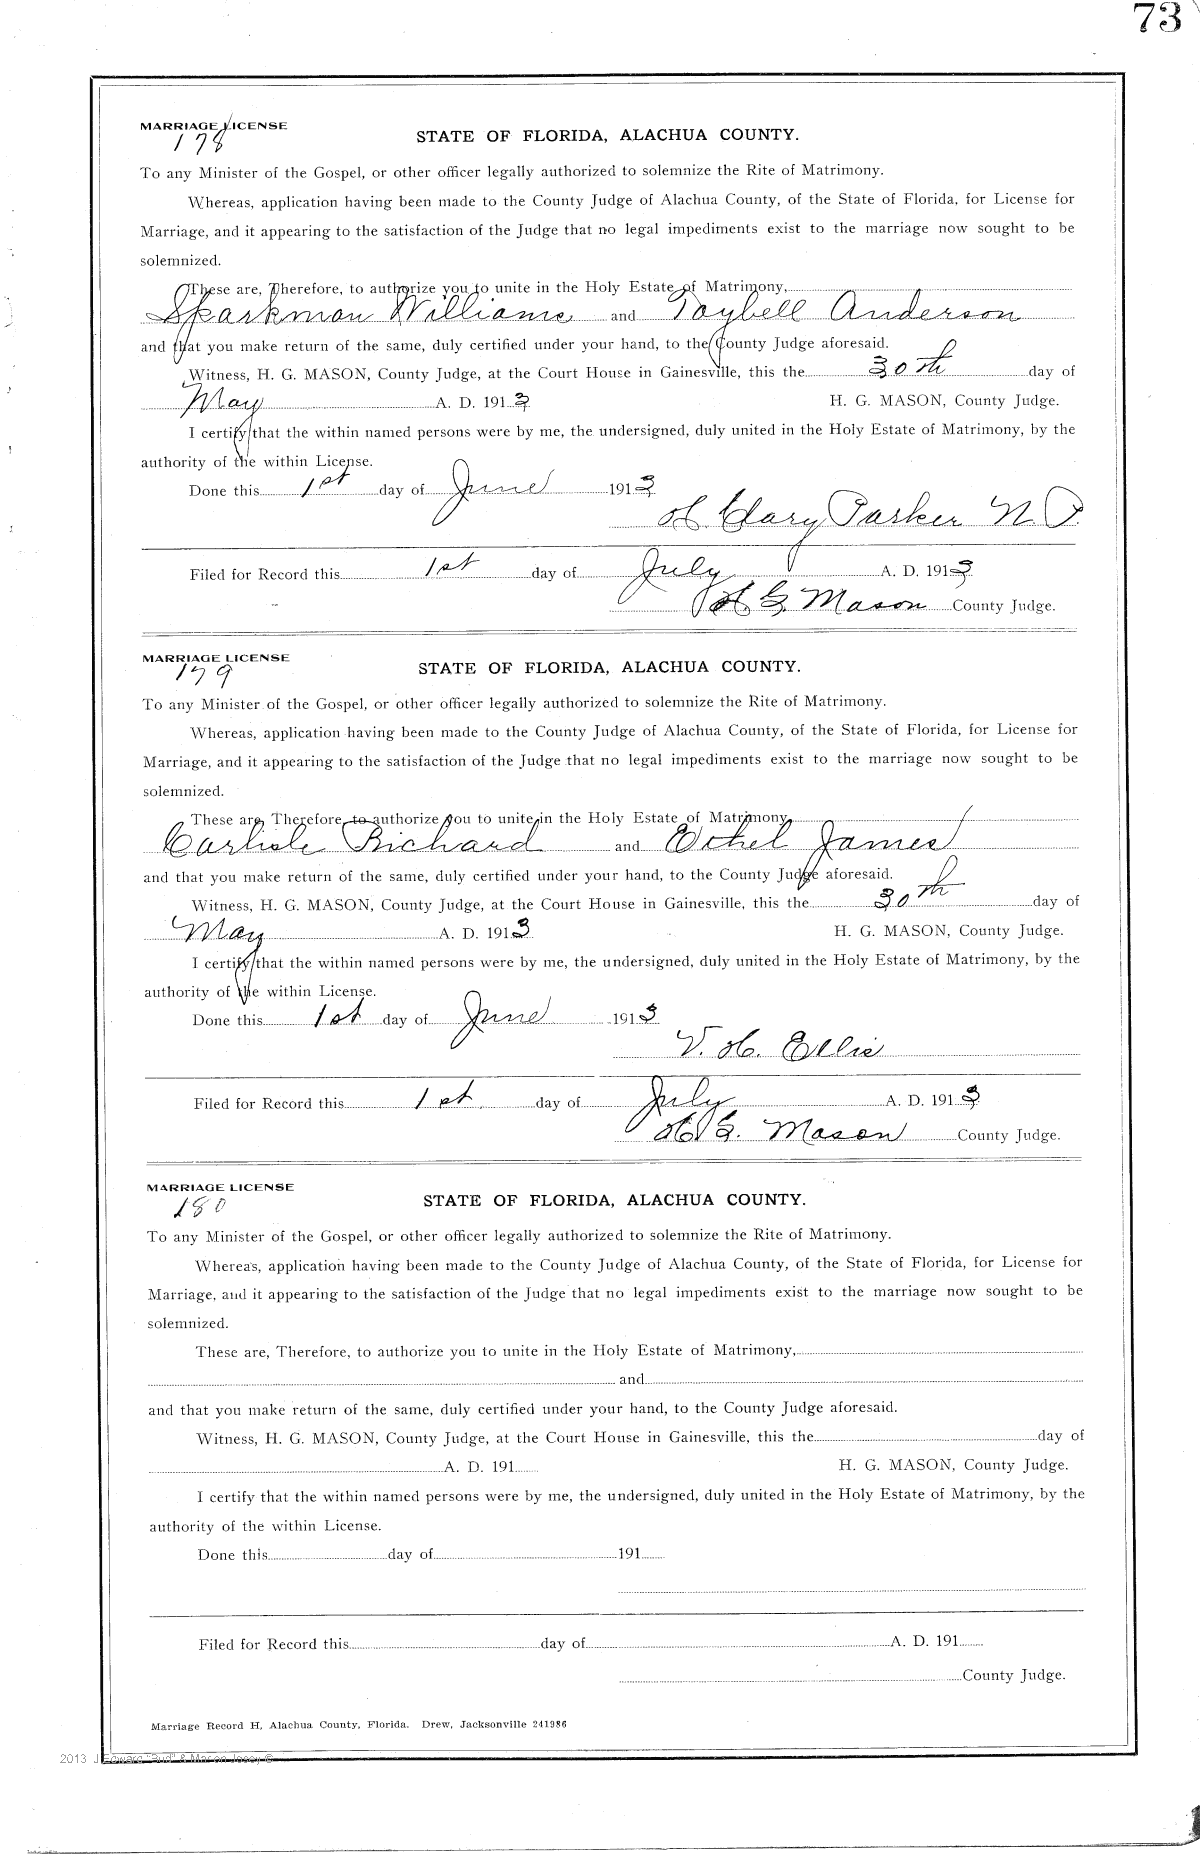 73
MARRIAGE LICENSE
178
STATE OF FLORIDA, ALACHUA COUNTY.
To any Minister of the Gospel, or other officer legally authorized to solemnize the Rite of Matrimony.
Whereas, application having been made to the County Judge of Alachua County, of the State of Florida, for License for
Marriage, and it appearing to the satisfaction of the Judge that no legal impediments exist to the marriage now sought to be
solemnized.
These are, Therefore, to authorize you to unite in the Holy Estate of Matrimony,
Sparkman Williams and Toybell Anderson
and that you make return of the same, duly certified under your hand, to the County Judge aforesaid.
Witness, H. G. MASON, County Judge, at the Court House in Gainesville, this the 30th day of
May A. D. 1913 H. G. MASON, County Judge.
I certify that the within named persons were by me, the undersigned, duly united in the Holy Estate of Matrimony, by the
authority of the within License.
Done this 1st day of June 1913
H Clary Parker N. P.
Filed for Record this 1st day of July A. D. 1913
H G Mason County Judge.
MARRIAGE LICENSE
179
STATE OF FLORIDA, ALACHUA COUNTY.
To any Minister of the Gospel, or other officer legally authorized to solemnize the Rite of Matrimony.
Whereas, application having been made to the County Judge of Alachua County, of the State of Florida, for License for
Marriage, and it appearing to the satisfaction of the Judge that no legal impediments exist to the marriage now sought to be
solemnized.
These are, Therefore, to authorize you to unite in the Holy Estate of Matrimony,
Carlisle Richard and Ethel James
and that you make return of the same, duly certified under your hand, to the County Judge aforesaid.
Witness, H. G. MASON, County Judge, at the Court House in Gainesville, this the 30th day of
May A. D. 1913 H. G. MASON, County Judge.
I certify that the within named persons were by me, the undersigned, duly united in the Holy Estate of Matrimony, by the
authority of the within License.
Done this 1st day of June 1913
V. H. Ellis
Filed for Record this 1st day of July A. D. 1913
H G. Mason County Judge.
MARRIAGE LICENSE
180
STATE OF FLORIDA, ALACHUA COUNTY.
To any Minister of the Gospel, or other officer legally authorized to solemnize the Rite of Matrimony.
Whereas, application having been made to the County Judge of Alachua County, of the State of Florida, for License for
Marriage, and it appearing to the satisfaction of the Judge that no legal impediments exist to the marriage now sought to be
solemnized.
These are, Therefore, to authorize you to unite in the Holy Estate of Matrimony,
and
and that you make return of the same, duly certified under your hand, to the County Judge aforesaid.
Witness, H. G. MASON, County Judge, at the Court House in Gainesville, this the day of
A. D. 191 H. G. MASON, County Judge.
I certify that the within named persons were by me, the undersigned, duly united in the Holy Estate of Matrimony, by the
authority of the within License.
Done this day of 191
Filed for Record this day of A. D. 191
County Judge.
Marriage Record H, Alachua County, Florida. Drew, Jacksonville 241986
2013 J Edward "Bud" & Mason Josey ©